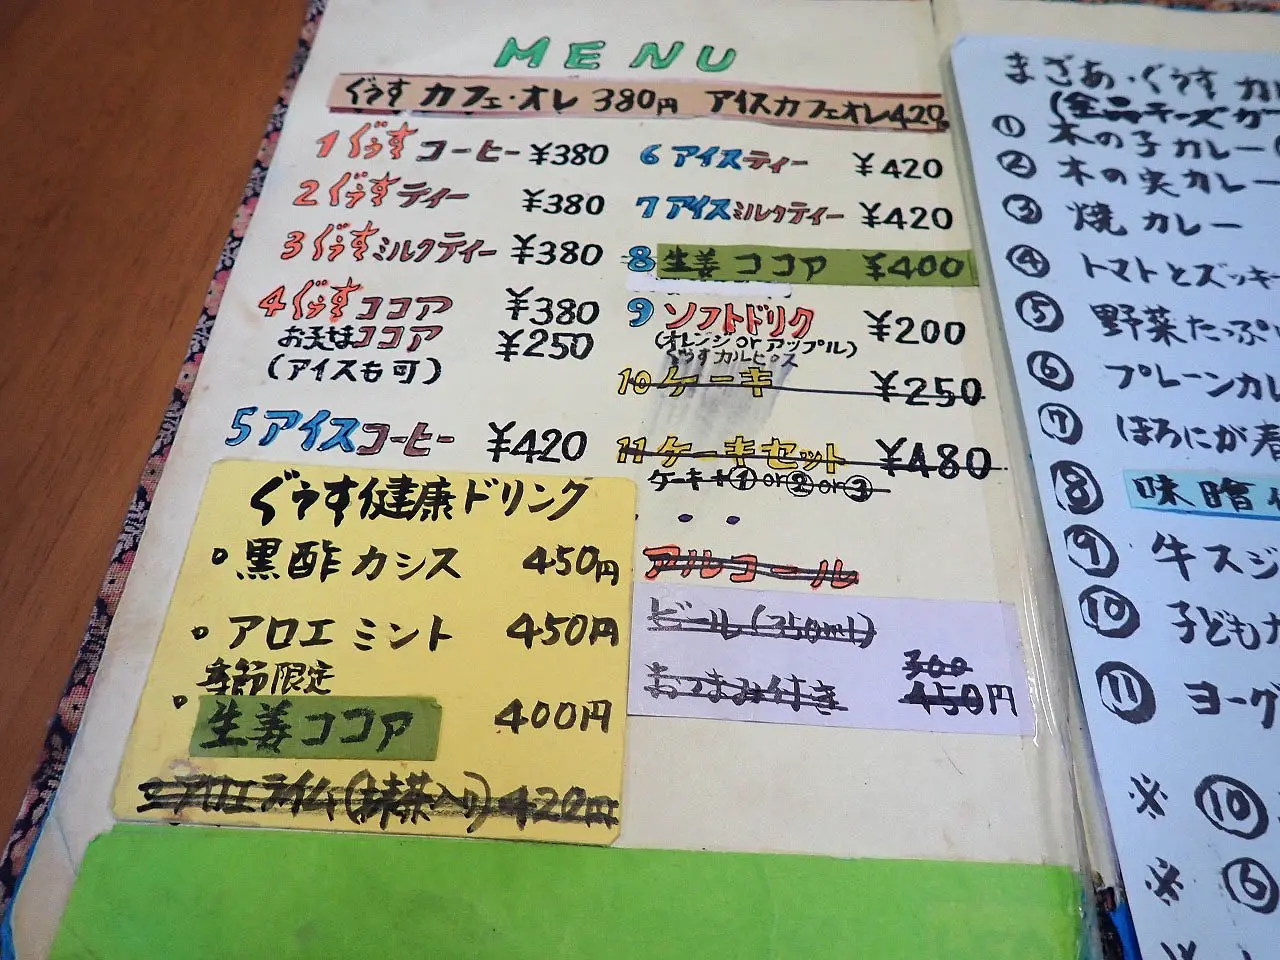 MENU
ぐうす カフェ・オレ 380円 アイスカフェオレ420
1 ぐうす コーヒー ¥380
2 ぐうす ティー ¥380
3 ぐうす ミルクティー ¥380
4 ぐうす ココア ¥380
お子さまココア ¥250
(アイスも可)
5 アイスコーヒー ¥420
6 アイスティー ¥420
7 アイスミルクティー ¥420
8 生姜ココア ¥400
9 ソフトドリンク ¥200
(オレンジ or アップル)
ぐうす カルピス
10 ケーキ ¥250
11 ケーキセット ¥480
ケーキ+①or②or③
アルコール
ビール(350ml)
300
おつまみ付き 450円
ぐうす健康ドリンク
黒酢カシス 450円
アロエミント 450円
季節限定
生姜ココア 400円
アロエライム(抹茶入り) 420円
まざあ・ぐうす カ
(全品チーズ
① 木の子カレー
② 木の実カレー
③ 焼カレー
④ トマトとズッキ
⑤ 野菜たっぷ
⑥ プレーンカレ
⑦ ほろにが春
⑧ 味噌
⑨ 牛スジ
⑩ 子どもカ
⑪ ヨーグ
※ ⑩
※ ⑥